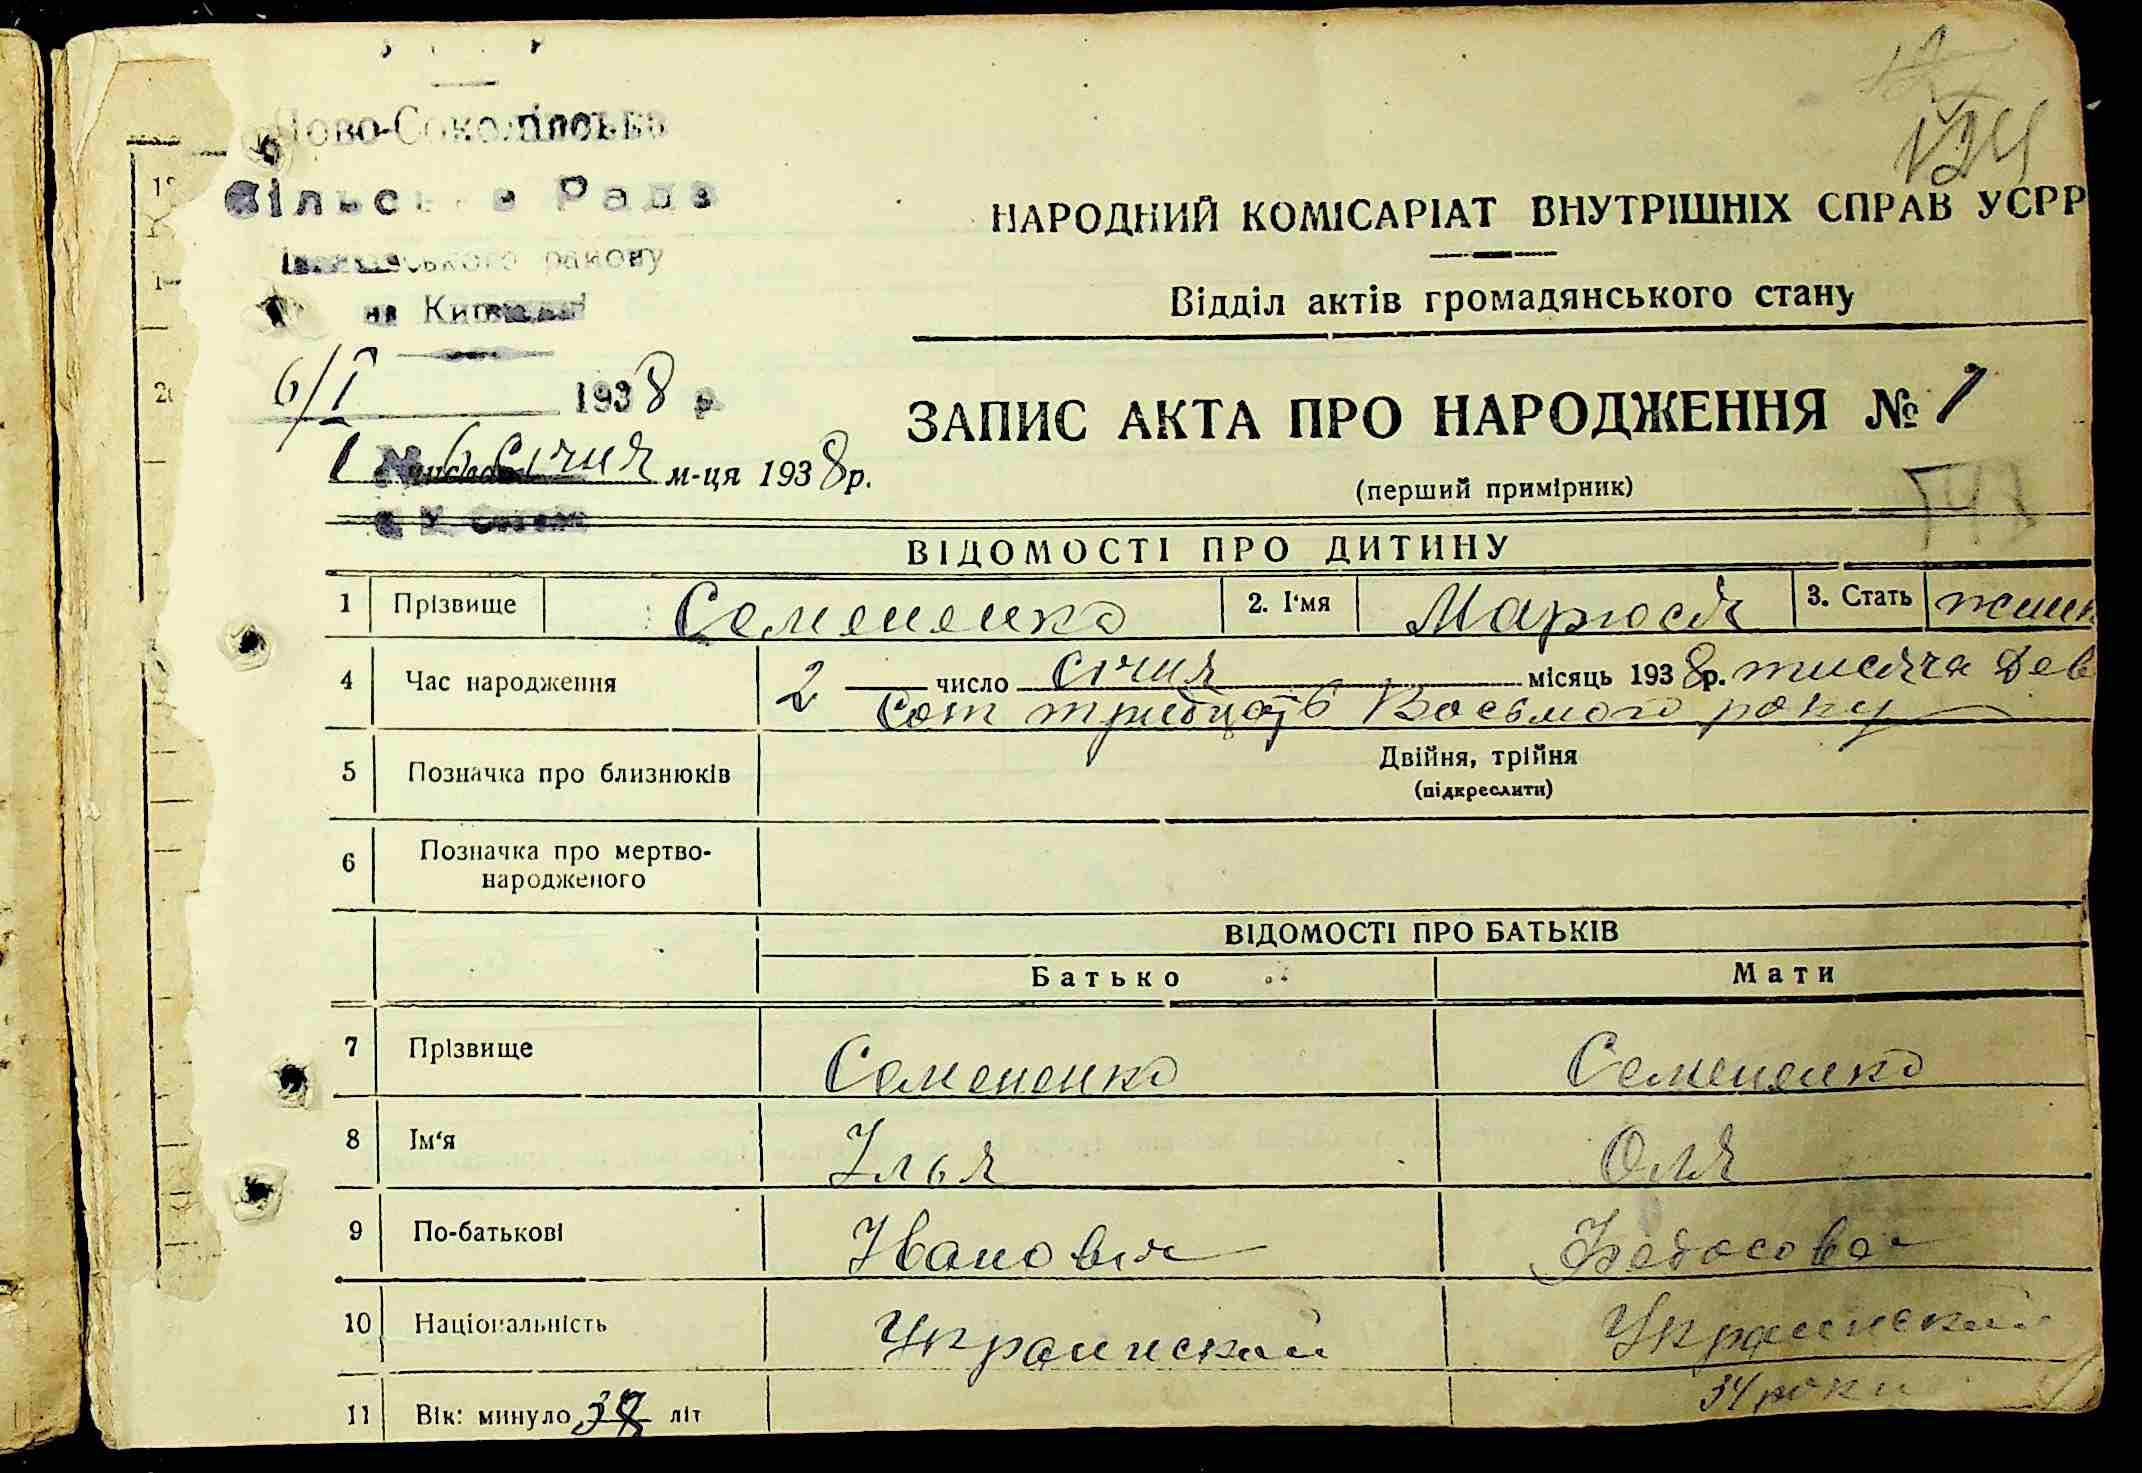 124
Ново-Соколівська
Сільська Рада
району
на Київщині
НАРОДНИЙ КОМІСАРІАТ ВНУТРІШНІХ СПРАВ УСРР
Відділ актів громадянського стану
6/I 1938 р.
ЗАПИС АКТА ПРО НАРОДЖЕННЯ № 1
1 6 січня м-ця 1938 р.
(перший примірник)
ВІДОМОСТІ ПРО ДИТИНУ
1 Прізвище Семененко 2. І'мя Маруся 3. Стать жіноч
4 Час народження 2 число січня місяць 1938 р. тисяча дев
сот тридцять восьмого року
5 Позначка про близнюків Двійня, трійня
(підкреслити)
6 Позначка про мертво-
народженого
ВІДОМОСТІ ПРО БАТЬКІВ
Батько Мати
7 Прізвище Семененко Семененко
8 Ім'я Ілья Оля
9 По-батькові Іванович Федосовна
10 Національність Украинский Украинский
11 Вік: минуло літ 34 роки